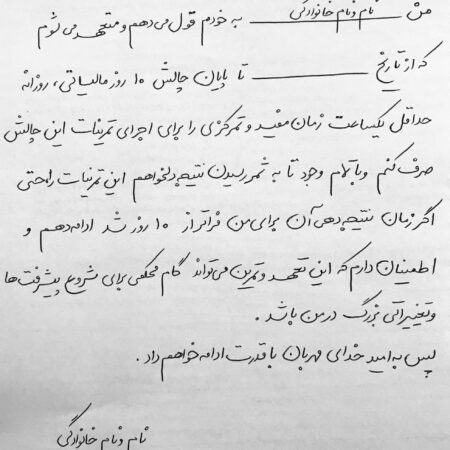 من نام و نام خانوادگی به خودم قول می‌دهم و متعهد می‌شوم
که از تاریخ ________ تا پایان چالش ۱۰ روز مالیاتی، روزانه
حداقل یکساعت زمان مفید و تمرکزی را برای اجرای تمرینات این چالش
صرف کنم و با تمام وجود تا به ثمر رسیدن نتیجه دلخواهم این تمرینات را حتی
اگر زمان نتیجه دهی آن برای من فراتر از ۱۰ روز شد ادامه دهم و
اطمینان دارم که این تعهد و تمرین می‌تواند گام محکمی برای شروع پیشرفت‌ها
و تغییراتی بزرگ در من باشد.
پس به امید خدای مهربان با قدرت ادامه خواهم داد.
نام و نام خانوادگی